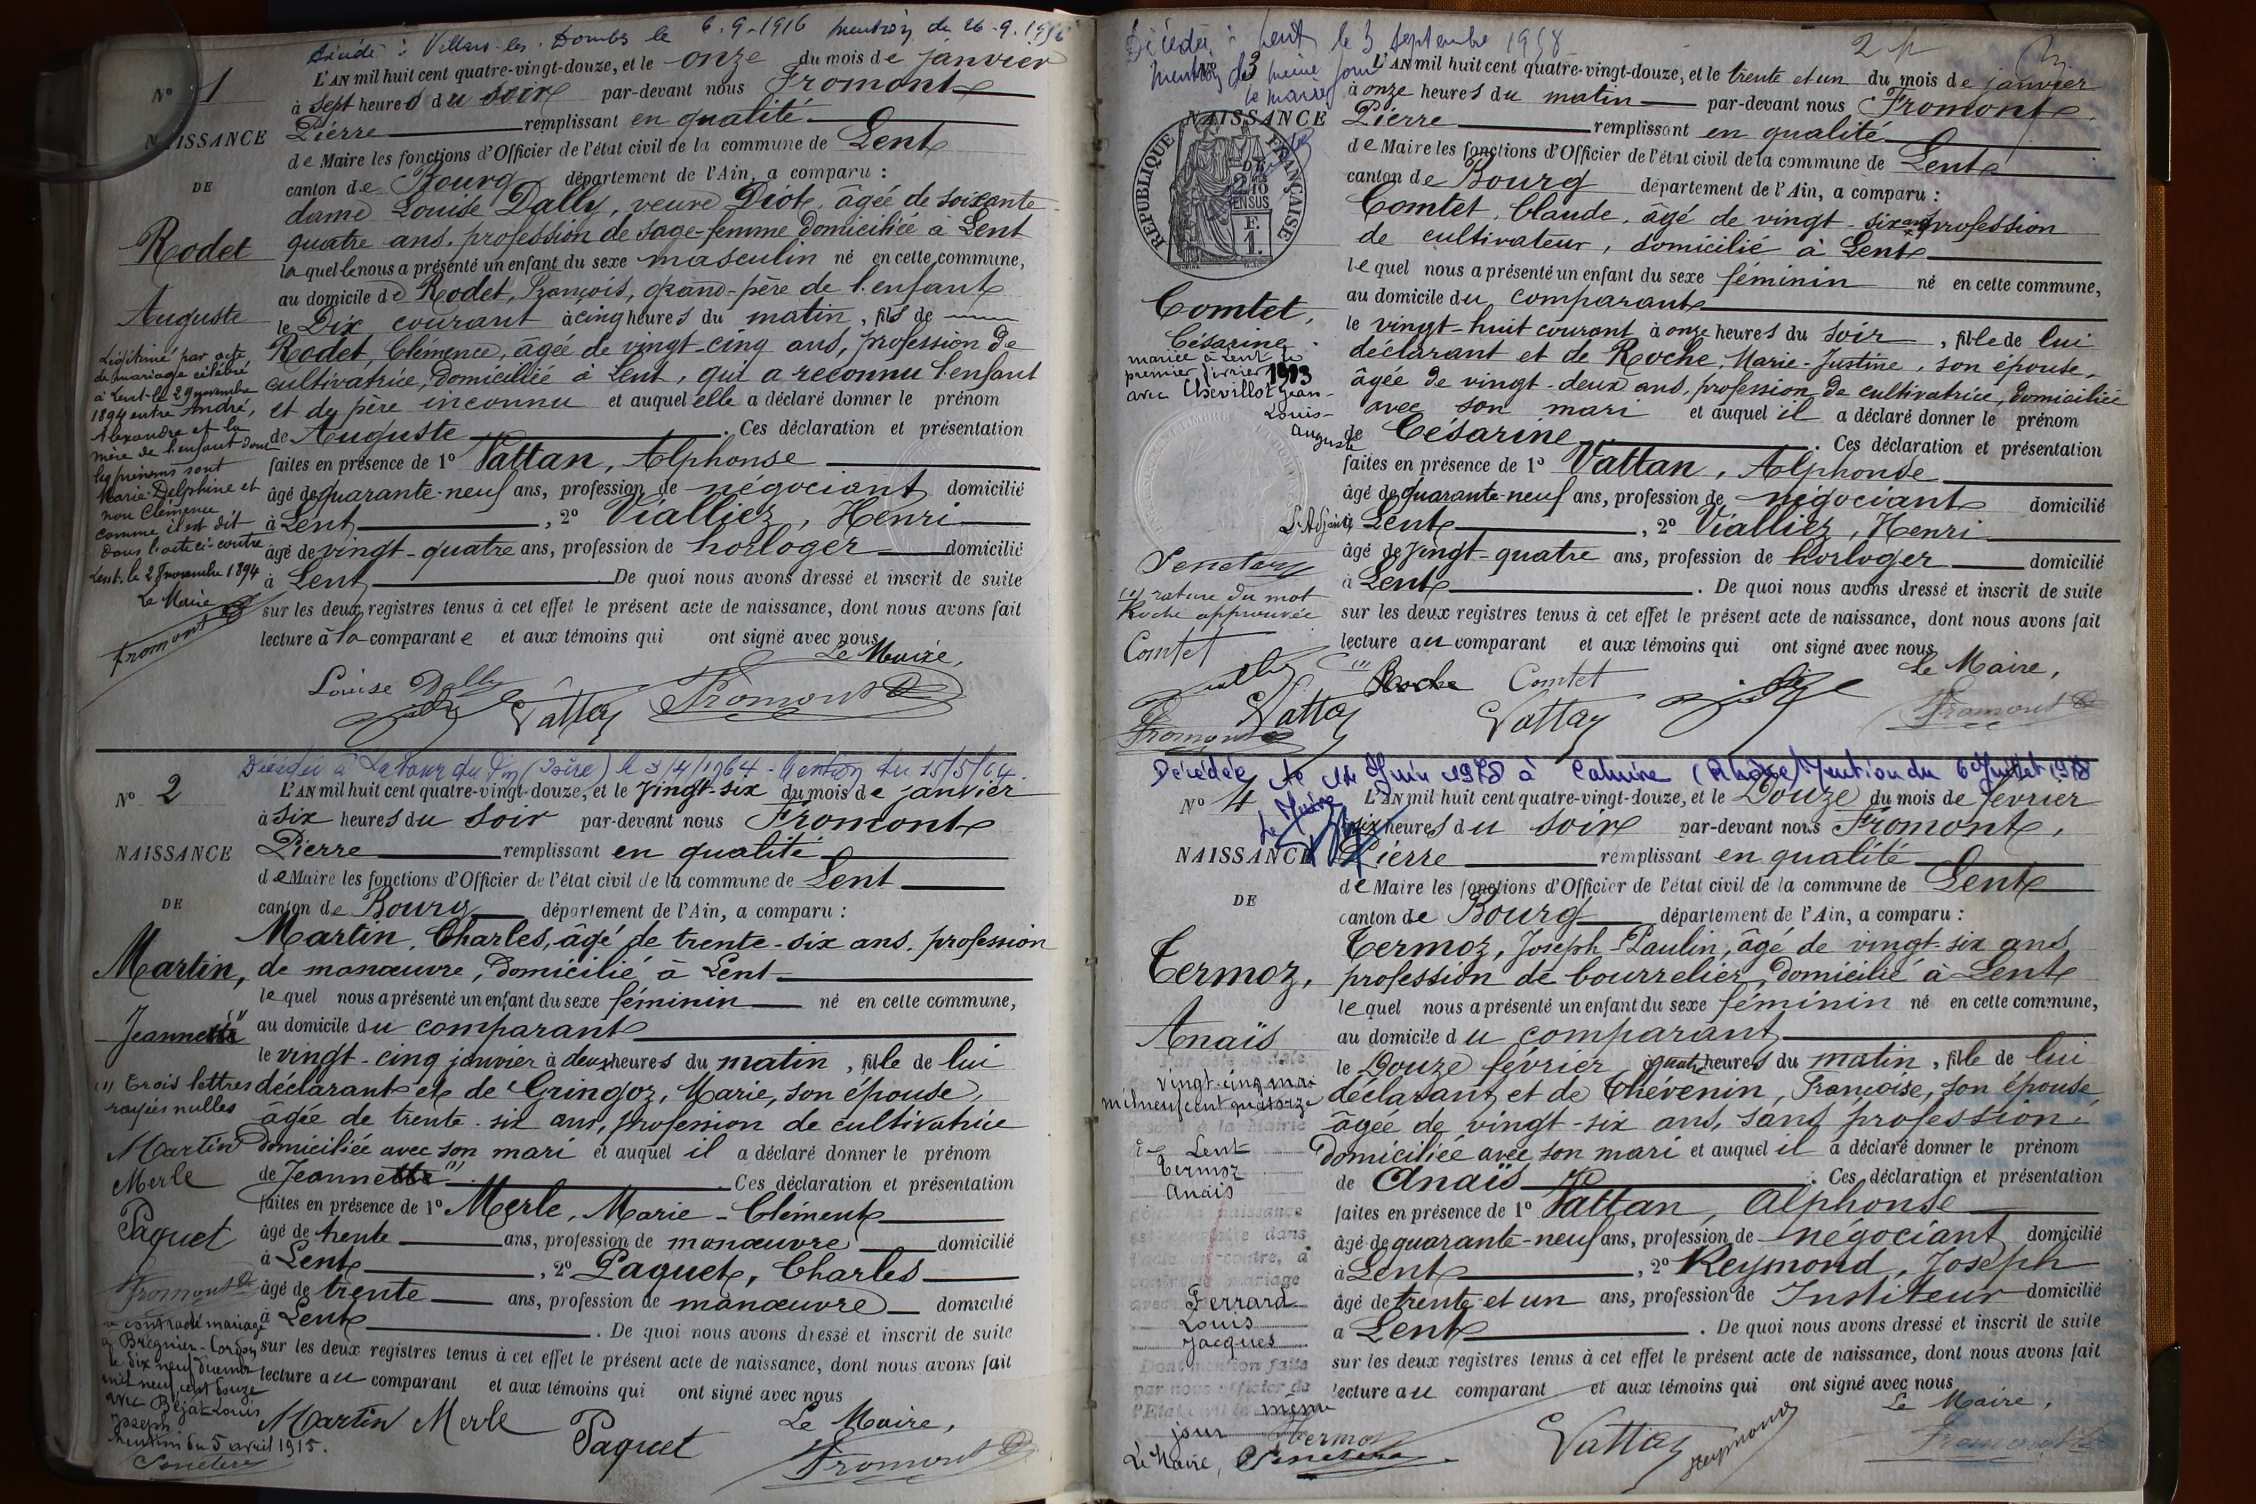 Décédé à Villars-les-Dombes le 6.9.1916 mention du 26.9.1916
N° 1
NAISSANCE
DE
Rodet
Auguste
Légitimé par acte
de mariage célébré
à Lent le 29 novembre
1894 entre André,
Alexandre et la
mère de l'enfant dont
les prénoms sont
Marie-Delphine et
non Clémence
comme il est dit
dans l'acte ci-contre
Lent, le 29 novembre 1894
Le Maire
Fromont
L'AN mil huit cent quatre-vingt-douze, et le onze du mois de janvier
à sept heures du soir par-devant nous Fromont
Pierre remplissant en qualité
de Maire les fonctions d'Officier de l'état civil de la commune de Lent
canton de Bourg département de l'Ain, a comparu :
dame Louise Dally, veuve Diot, âgée de soixante-
quatre ans, profession de sage-femme domiciliée à Lent
laquelle nous a présenté un enfant du sexe masculin né en cette commune,
au domicile de Rodet, François, grand-père de l'enfant
le Dix courant à cinq heures du matin, fils de
Rodet, Clémence, âgée de vingt-cinq ans, profession de
cultivatrice, domiciliée à Lent, qui a reconnu l'enfant
et de père inconnu et auquel elle a déclaré donner le prénom
de Auguste. Ces déclaration et présentation
faites en présence de 1° Vattan, Alphonse
âgé de quarante-neuf ans, profession de négociant domicilié
à Lent, 2° Vialliez, Henri
âgé de vingt-quatre ans, profession de horloger domicilié
à Lent De quoi nous avons dressé et inscrit de suite
sur les deux registres tenus à cet effet le présent acte de naissance, dont nous avons fait
lecture à la comparante et aux témoins qui ont signé avec nous
Le Maire,
Louise Dally Vattan Fromont
Décédée à La Tour du Pin (Isère) le 3/4/1964 - Mention du 15/5/64.
N° 2
NAISSANCE
DE
Martin,
Jeannette (1)
(1) Trois lettres
rayées nulles
Martin
Merle
Paquet
Fromont
a contracté mariage
à Brégnier-Cordon
le dix neuf
mil neuf cent douze
avec Béjat Louis
Joseph
Mention du 5 avril 1915.
L'AN mil huit cent quatre-vingt-douze, et le vingt-six du mois de janvier
à six heures du soir par-devant nous Fromont
Pierre remplissant en qualité
de Maire les fonctions d'Officier de l'état civil de la commune de Lent
canton de Bourg département de l'Ain, a comparu :
Martin, Charles, âgé de trente-six ans, profession
de manœuvre, domicilié à Lent
lequel nous a présenté un enfant du sexe féminin né en cette commune,
au domicile du comparant
le vingt-cinq janvier à deux heures du matin, fille de lui
déclarant et de Gringoz, Marie, son épouse,
âgée de trente-six ans, profession de cultivatrice
domiciliée avec son mari et auquel il a déclaré donner le prénom
de Jeannette (1). Ces déclaration et présentation
faites en présence de 1° Merle, Marie-Clément
âgé de trente ans, profession de manœuvre domicilié
à Lent, 2° Paquet, Charles
âgé de trente ans, profession de manœuvre domicilié
à Lent. De quoi nous avons dressé et inscrit de suite
sur les deux registres tenus à cet effet le présent acte de naissance, dont nous avons fait
lecture au comparant et aux témoins qui ont signé avec nous
Le Maire,
Martin Merle Paquet Fromont
Décédée à Lent le 3 septembre 1958
Mention du même jour
le maire
2 p
N° 3
NAISSANCE
REPUBLIQUE FRANÇAISE
Comtet,
Césarine
mariée à Lent le
premier février 1913
avec Chevillot Jean-
Louis-
Auguste
L'Adjoint
(1) rature du mot
Roche approuvée
Comtet
Vattan
Fromont
L'AN mil huit cent quatre-vingt-douze, et le trente et un du mois de janvier
à onze heures du matin par-devant nous Fromont
Pierre remplissant en qualité
de Maire les fonctions d'Officier de l'état civil de la commune de Lent
canton de Bourg département de l'Ain, a comparu :
Comtet, Claude, âgé de vingt-six ans profession
de cultivateur, domicilié à Lent
lequel nous a présenté un enfant du sexe féminin né en cette commune,
au domicile du comparant
le vingt-huit courant à onze heures du soir, fille de lui
déclarant et de Roche, Marie-Justine, son épouse,
âgée de vingt-deux ans, profession de cultivatrice, domiciliée
avec son mari et auquel il a déclaré donner le prénom
de Césarine. Ces déclaration et présentation
faites en présence de 1° Vattan, Alphonse
âgé de quarante-neuf ans, profession de négociant domicilié
à Lent, 2° Vialliez, Henri
âgé de vingt-quatre ans, profession de horloger domicilié
à Lent. De quoi nous avons dressé et inscrit de suite
sur les deux registres tenus à cet effet le présent acte de naissance, dont nous avons fait
lecture au comparant et aux témoins qui ont signé avec nous
Le Maire,
(1) Roche Comtet Vattan Fromont
Décédée le 14 Juin 1978 à Caluire (Rhône) Mention du 6 Juillet 1978
Le Maire
N° 4
NAISSANCE
DE
Termoz,
Anaïs
vingt-cinq mai
mil neuf cent quatorze
Lent
Termoz
Anaïs
Ferrard
Louis
Jacques
Dont mention faite
par nous officier de
l'Etat civil le même
jour
Le Maire,
L'AN mil huit cent quatre-vingt-douze, et le Douze du mois de février
à six heures du soir par-devant nous Fromont,
Pierre remplissant en qualité
de Maire les fonctions d'Officier de l'état civil de la commune de Lent
canton de Bourg département de l'Ain, a comparu :
Termoz, Joseph-Paulin, âgé de vingt-six ans
profession de bourrelier, domicilié à Lent
lequel nous a présenté un enfant du sexe féminin né en cette commune,
au domicile du comparant
le Douze février à quatre heures du matin, fille de lui
déclarant et de Thévenin, Françoise, son épouse
âgée de vingt-six ans, sans profession,
domiciliée avec son mari et auquel il a déclaré donner le prénom
de Anaïs. Ces déclaration et présentation
faites en présence de 1° Vattan, Alphonse
âgé de quarante-neuf ans, profession de négociant domicilié
à Lent, 2° Reymond, Joseph
âgé de trente et un ans, profession de Instituteur domicilié
a Lent. De quoi nous avons dressé et inscrit de suite
sur les deux registres tenus à cet effet le présent acte de naissance, dont nous avons fait
lecture au comparant et aux témoins qui ont signé avec nous
Le Maire,
Termoz Vattan Reymond Fromont